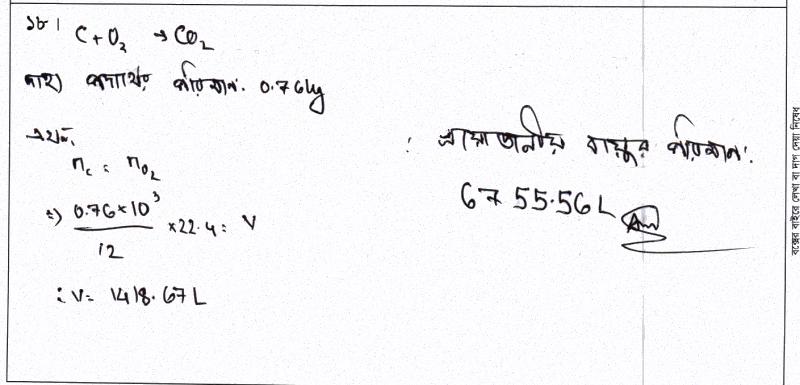 ১৮।
C + O₂ → CO₂
দাহ্য পদার্থের পরিমাণ: 0.76 kg
এখন,
n_c = n_O₂
⇒ (0.76×10³)/12 ×22.4 = V
∴ V = 1418.67 L
∴ প্রয়োজনীয় বায়ুর পরিমাণ:
6755.56 L Ans
বক্সের বাইরে লেখা বা দাগ দেয়া নিষেধ